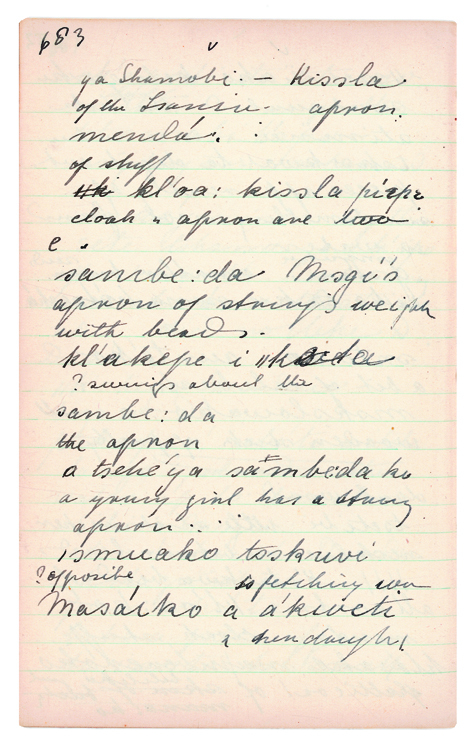 683
ya Shamobi. — Kissla
of the apron.
mendá.
of stuff
kl'oa: kissla
cloak " apron are two
e.
sambe:da Msgi's
apron of strings weigh
with beads.
kl'akepe i
? swings about the
sambe: da
the apron
a tsehe'ya sambeda ko
a young girl has a string
apron.
ismuako tsskuvi
? opposite fetching
Masarko a ákweti